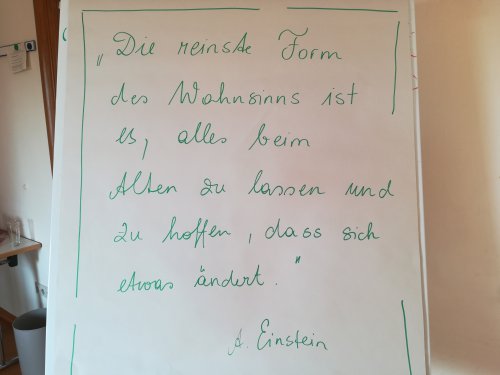 „Die reinste Form
des Wahnsinns ist
es, alles beim
Alten zu lassen und
zu hoffen, dass sich
etwas ändert."
A. Einstein